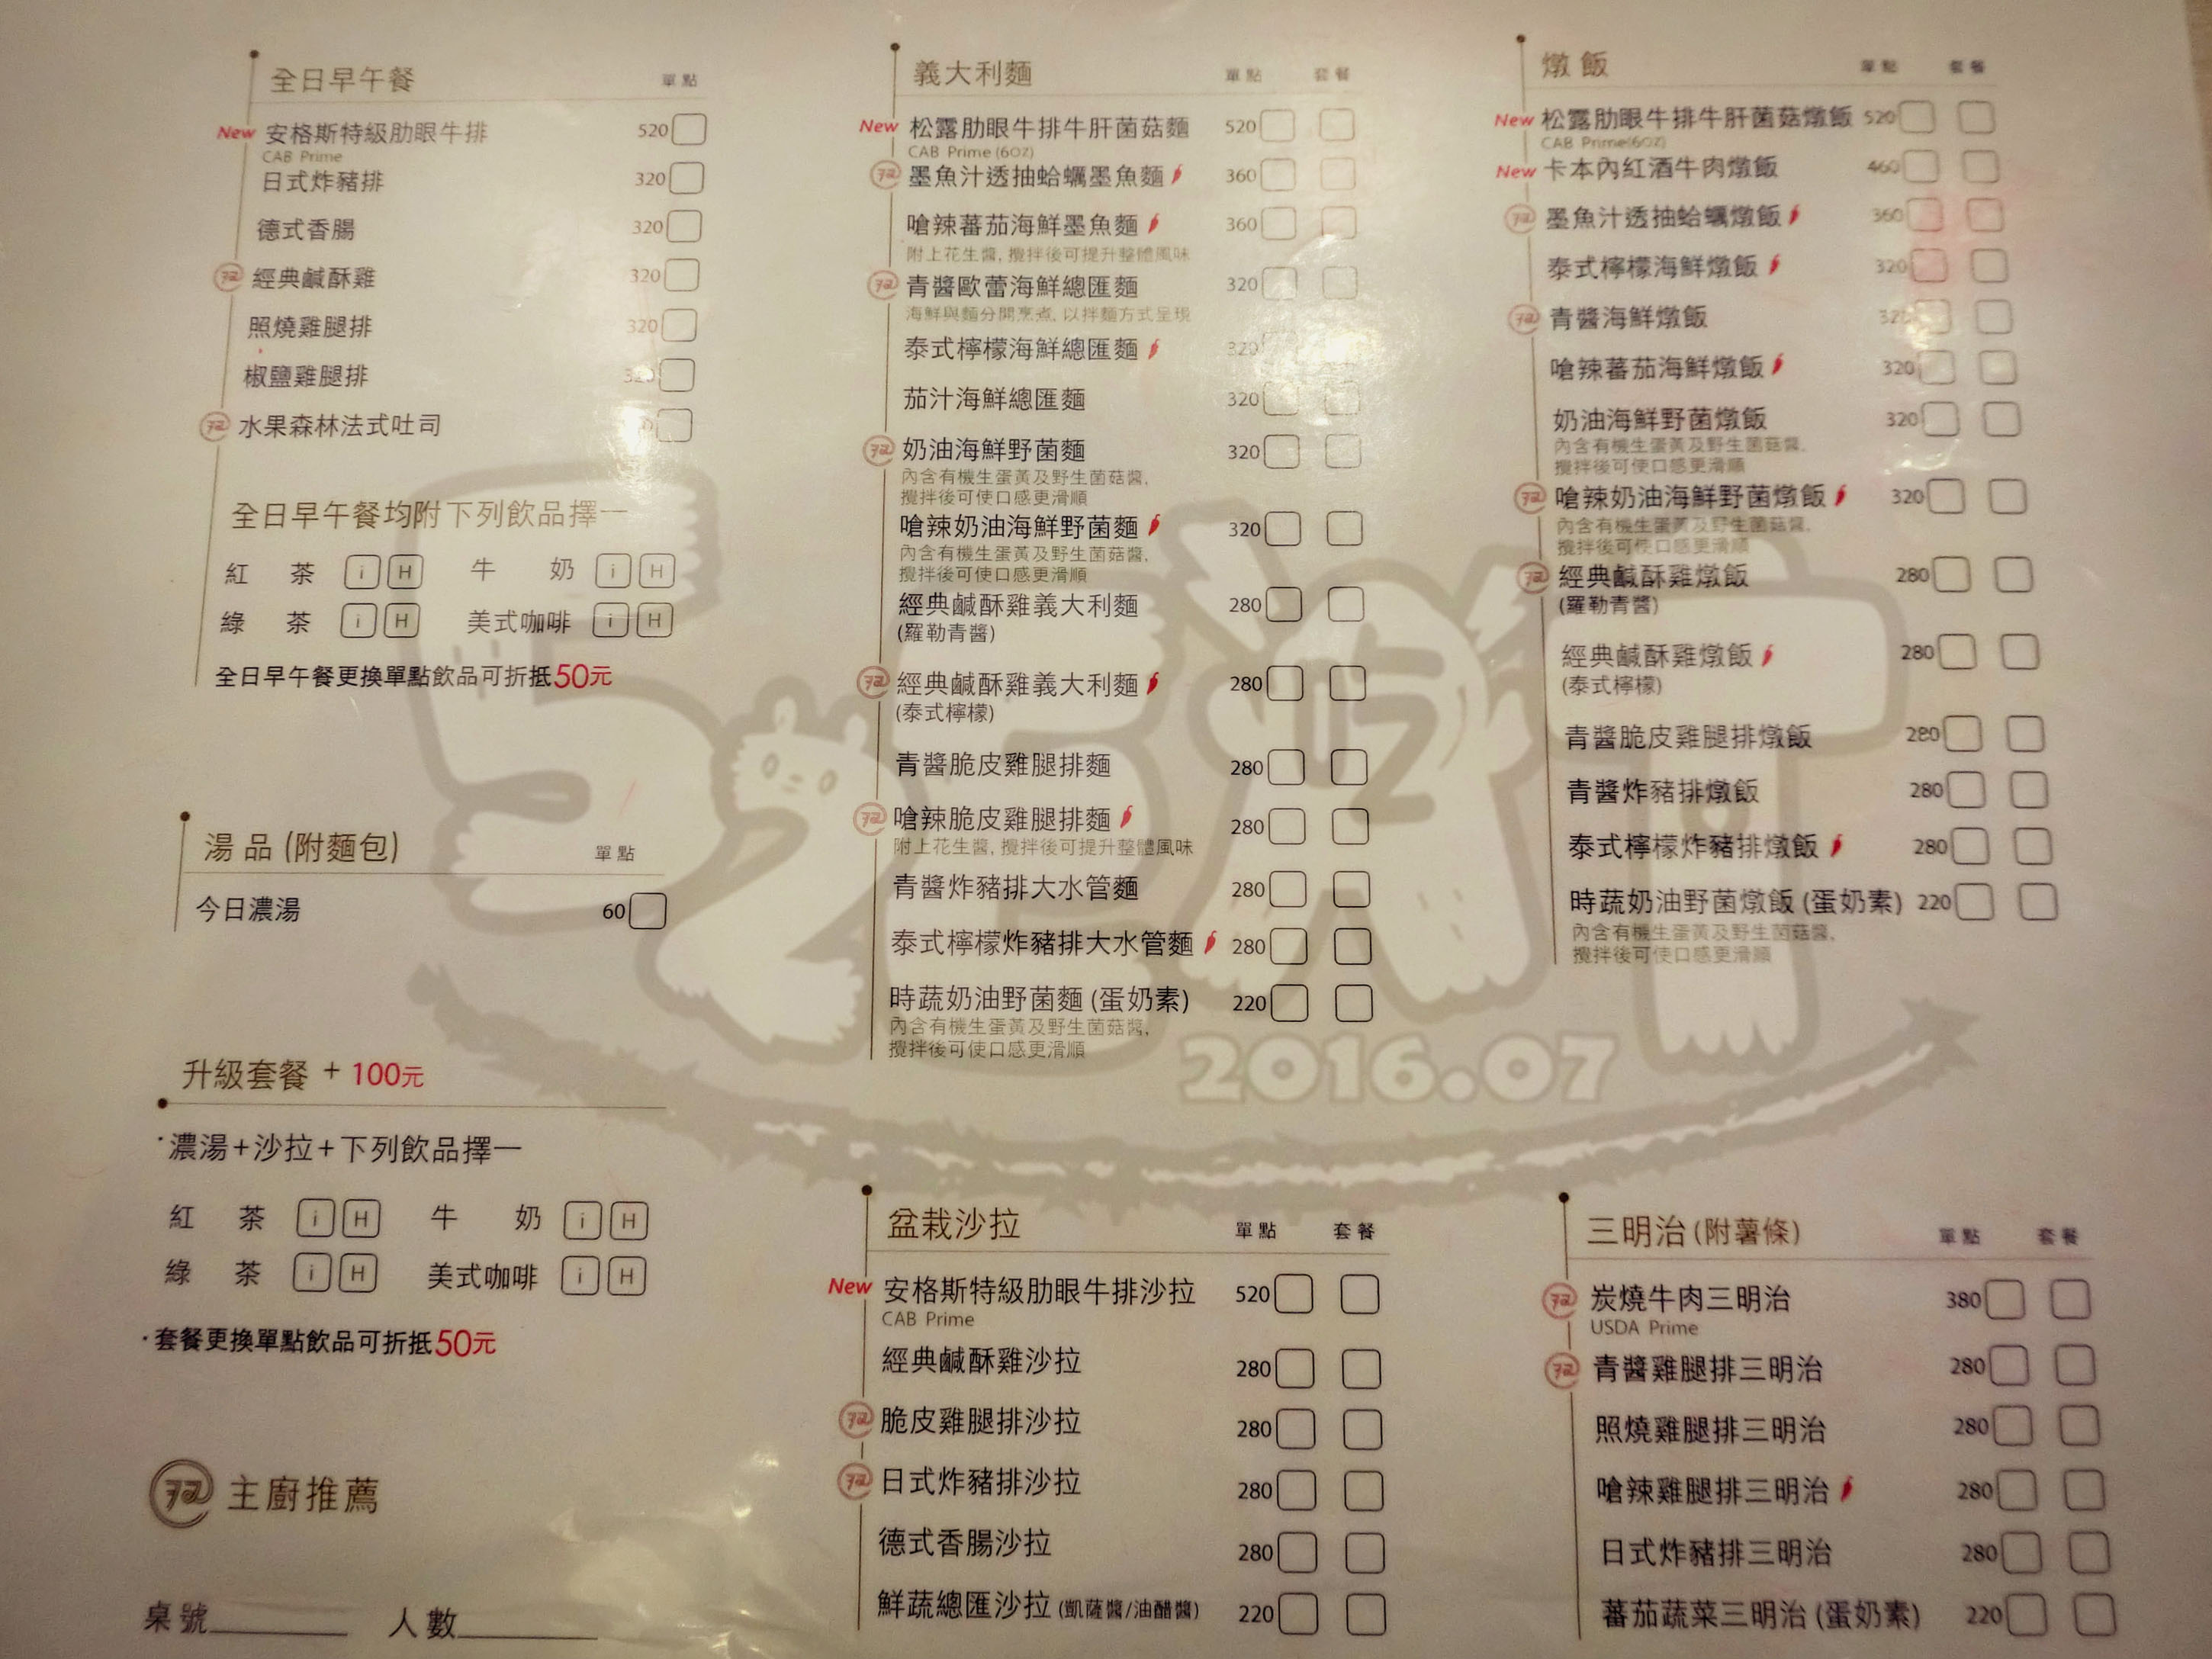 全日早午餐 單點
New 安格斯特級肋眼牛排 520
CAB Prime
日式炸豬排 320
德式香腸 320
經典鹹酥雞 320
照燒雞腿排 320
椒鹽雞腿排 320
水果森林法式吐司
全日早午餐均附下列飲品擇一
紅 茶 i H 牛 奶 i H
綠 茶 i H 美式咖啡 i H
全日早午餐更換單點飲品可折抵50元
湯品(附麵包) 單點
今日濃湯 60
升級套餐 + 100元
·濃湯+沙拉+下列飲品擇一
紅 茶 i H 牛 奶 i H
綠 茶 i H 美式咖啡 i H
·套餐更換單點飲品可折抵50元
主廚推薦
桌號 人數
義大利麵 單點 套餐
New 松露肋眼牛排牛肝菌菇麵 520
CAB Prime (6OZ)
墨魚汁透抽蛤蠣墨魚麵 360
嗆辣蕃茄海鮮墨魚麵 360
附上花生醬, 攪拌後可提升整體風味
青醬歐蕾海鮮總匯麵 320
海鮮與麵分開烹煮, 以拌麵方式呈現
泰式檸檬海鮮總匯麵 320
茄汁海鮮總匯麵 320
奶油海鮮野菌麵 320
內含有機生蛋黃及野生菌菇醬,
攪拌後可使口感更滑順
嗆辣奶油海鮮野菌麵 320
內含有機生蛋黃及野生菌菇醬,
攪拌後可使口感更滑順
經典鹹酥雞義大利麵 280
(羅勒青醬)
經典鹹酥雞義大利麵 280
(泰式檸檬)
青醬脆皮雞腿排麵 280
嗆辣脆皮雞腿排麵 280
附上花生醬, 攪拌後可提升整體風味
青醬炸豬排大水管麵 280
泰式檸檬炸豬排大水管麵 280
時蔬奶油野菌麵 (蛋奶素) 220
內含有機生蛋黃及野生菌菇醬,
攪拌後可使口感更滑順
2016.07
盆栽沙拉 單點 套餐
New 安格斯特級肋眼牛排沙拉 520
CAB Prime
經典鹹酥雞沙拉 280
脆皮雞腿排沙拉 280
日式炸豬排沙拉 280
德式香腸沙拉 280
鮮蔬總匯沙拉 (凱薩醬/油醋醬) 220
燉飯 單點 套餐
New 松露肋眼牛排牛肝菌菇燉飯 520
CAB Prime(6OZ)
New 卡本內紅酒牛肉燉飯 460
墨魚汁透抽蛤蠣燉飯 360
泰式檸檬海鮮燉飯 320
青醬海鮮燉飯 320
嗆辣蕃茄海鮮燉飯 320
奶油海鮮野菌燉飯 320
內含有機生蛋黃及野生菌菇醬,
攪拌後可使口感更滑順
嗆辣奶油海鮮野菌燉飯 320
內含有機生蛋黃及野生菌菇醬,
攪拌後可使口感更滑順
經典鹹酥雞燉飯 280
(羅勒青醬)
經典鹹酥雞燉飯 280
(泰式檸檬)
青醬脆皮雞腿排燉飯 280
青醬炸豬排燉飯 280
泰式檸檬炸豬排燉飯 280
時蔬奶油野菌燉飯 (蛋奶素) 220
內含有機生蛋黃及野生菌菇醬,
攪拌後可使口感更滑順
三明治 (附薯條) 單點 套餐
炭燒牛肉三明治 380
USDA Prime
青醬雞腿排三明治 280
照燒雞腿排三明治 280
嗆辣雞腿排三明治 280
日式炸豬排三明治 280
蕃茄蔬菜三明治 (蛋奶素) 220